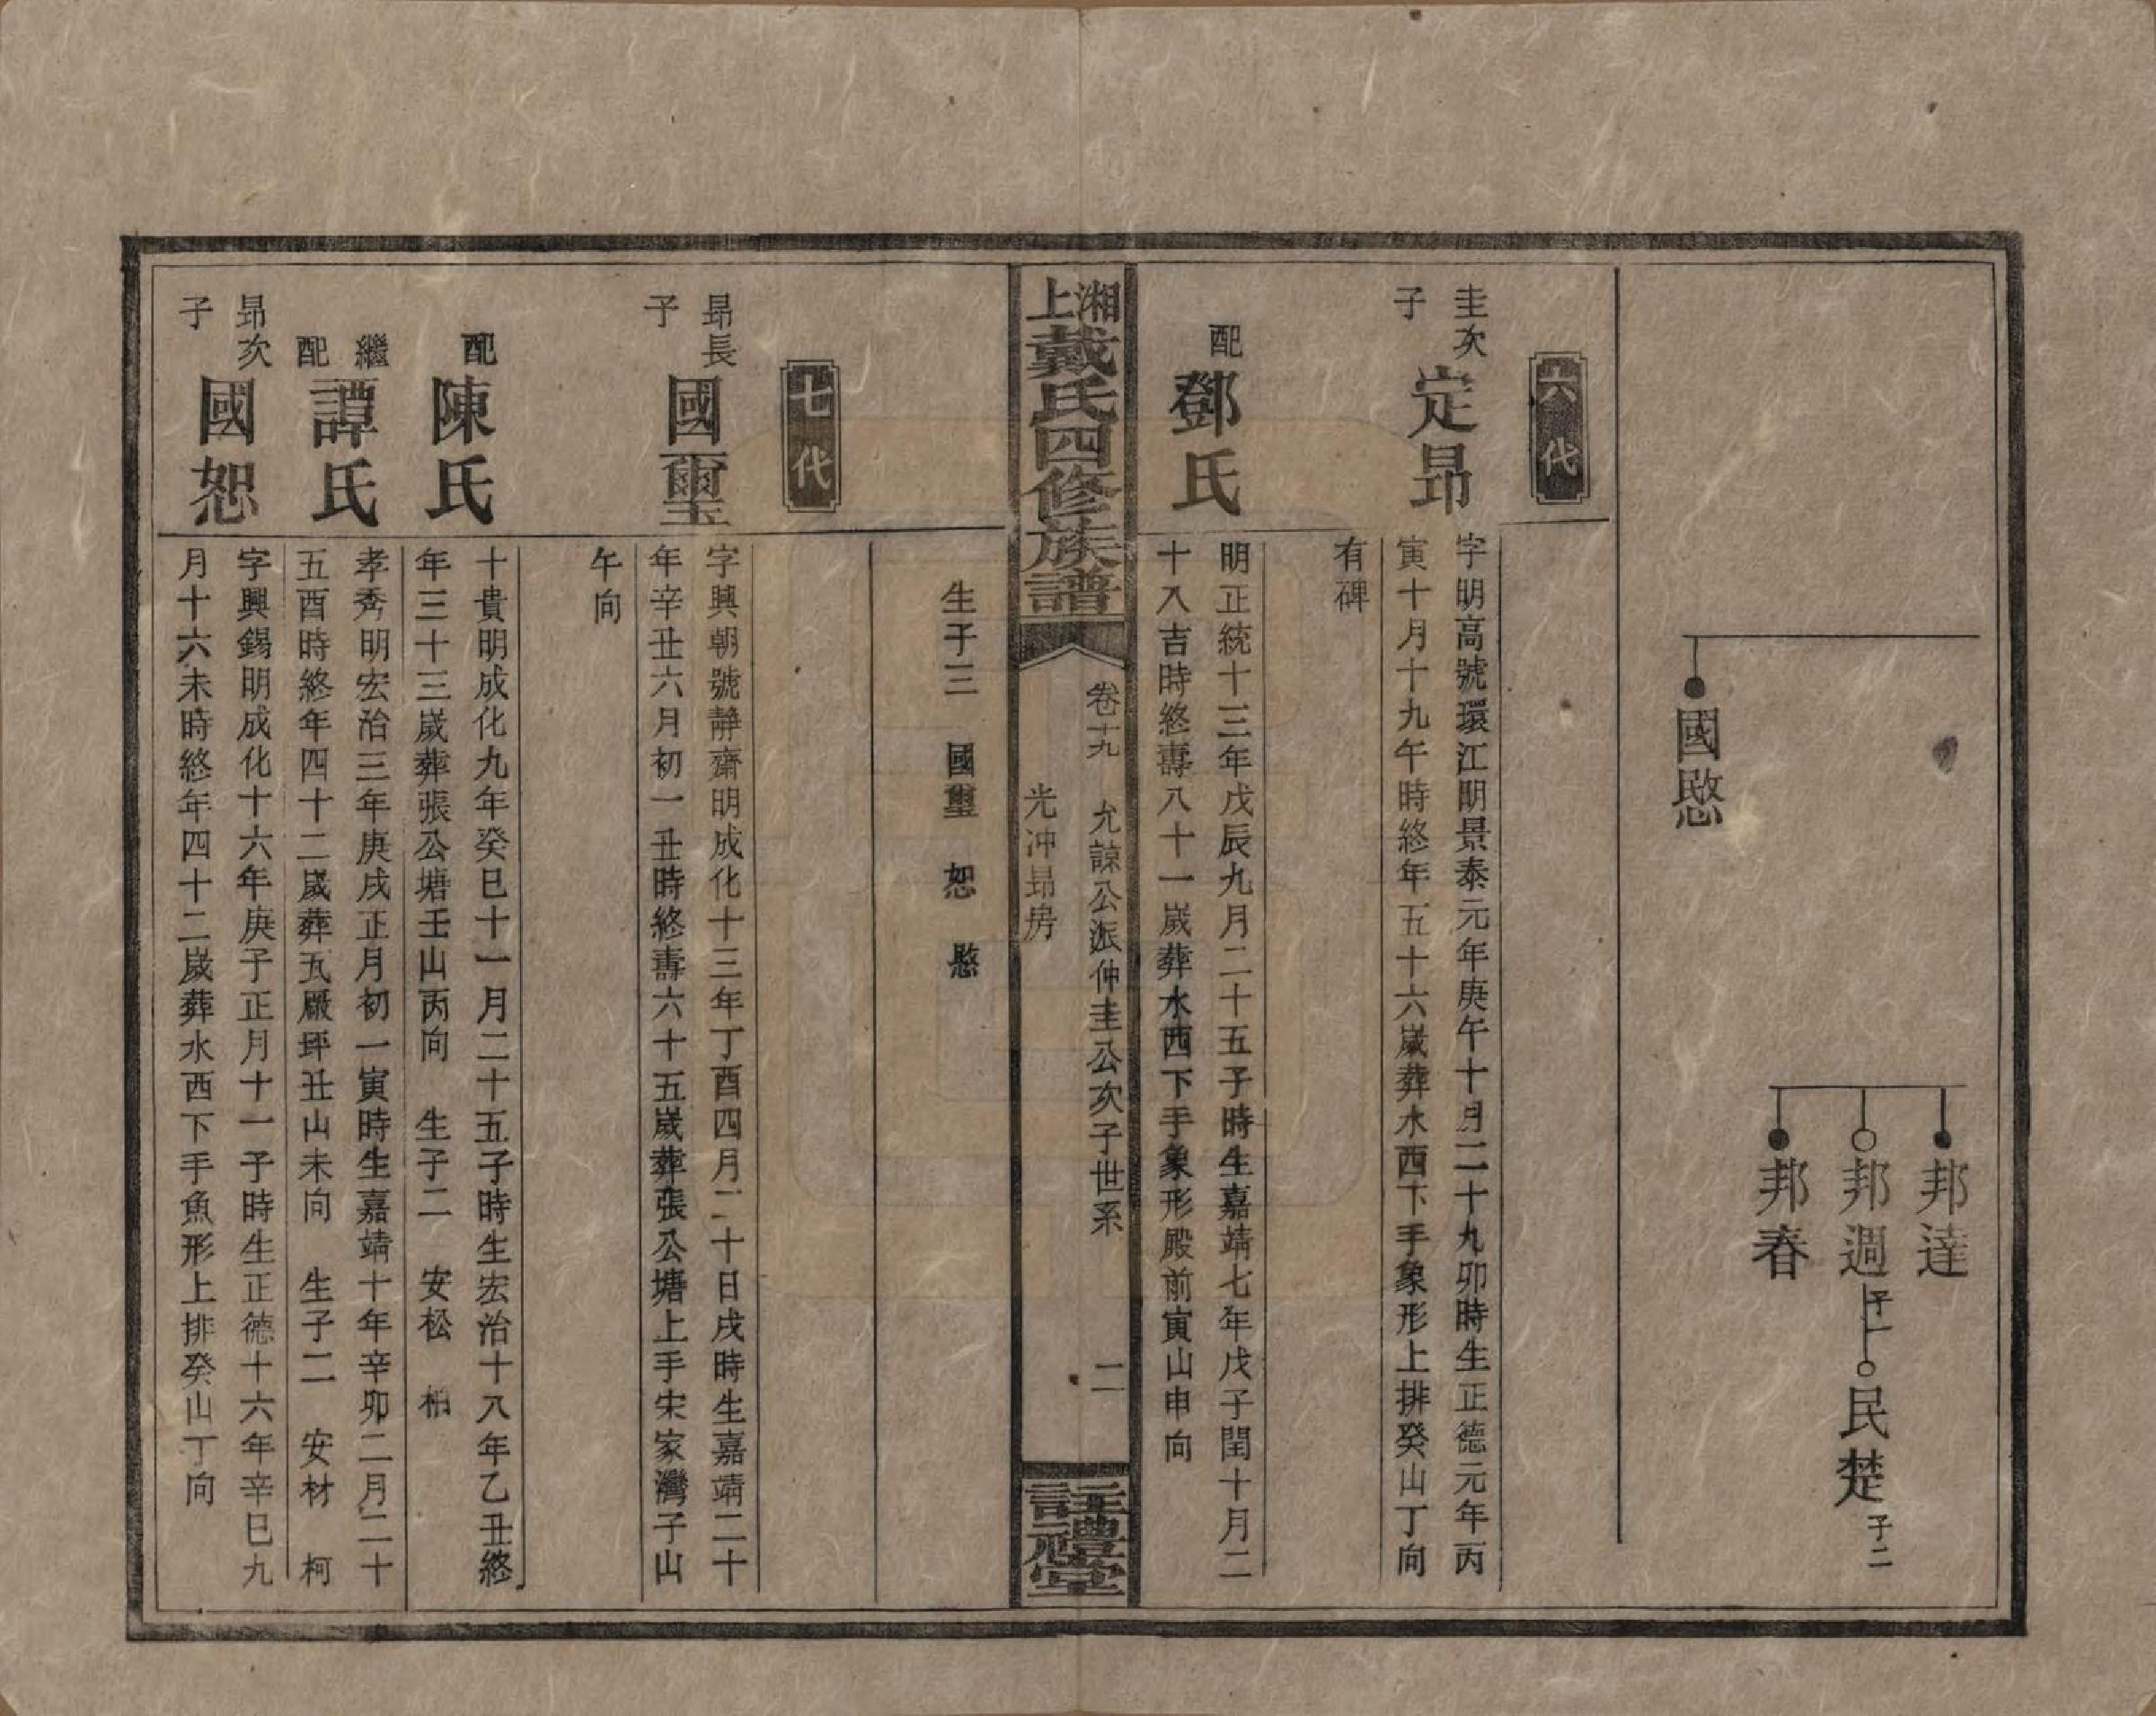 邦達
邦週 子一 民楚 子二
邦春
國愍
六代
圭次子 定昻
字明高號環江明景泰元年庚午十月二十九卯時生正德元年丙
寅十月十九午時終年五十六歲葬水西下手象形上排癸山丁向
有碑
配 鄧氏
明正統十三年戊辰九月二十五子時生嘉靖七年戊子閏十月二
十八吉時終壽八十一歲葬水西下手象形殿前寅山申向
湘上戴氏四修族譜
卷十九 允諒公派仲圭公次子世系 二
光冲昻房
註禮堂
生子三 國璽 恕 愍
七代
昻長子 國璽
字興朝號靜齋明成化十三年丁酉四月二十日戌時生嘉靖二十
年辛丑六月初一丑時終壽六十五歲葬張公塘上手宋家灣子山
午向
配 陳氏
十貴明成化九年癸巳十一月二十五子時生宏治十八年乙丑終
年三十三歲葬張公塘壬山丙向 生子二 安松 柏
繼配 譚氏
孝秀明宏治三年庚戌正月初一寅時生嘉靖十年辛卯二月二十
五酉時終年四十二歲葬瓦廠坪丑山未向 生子二 安材 柯
昻次子 國恕
字興錫明成化十六年庚子正月十一子時生正德十六年辛巳九
月十六未時終年四十二歲葬水西下手魚形上排癸山丁向